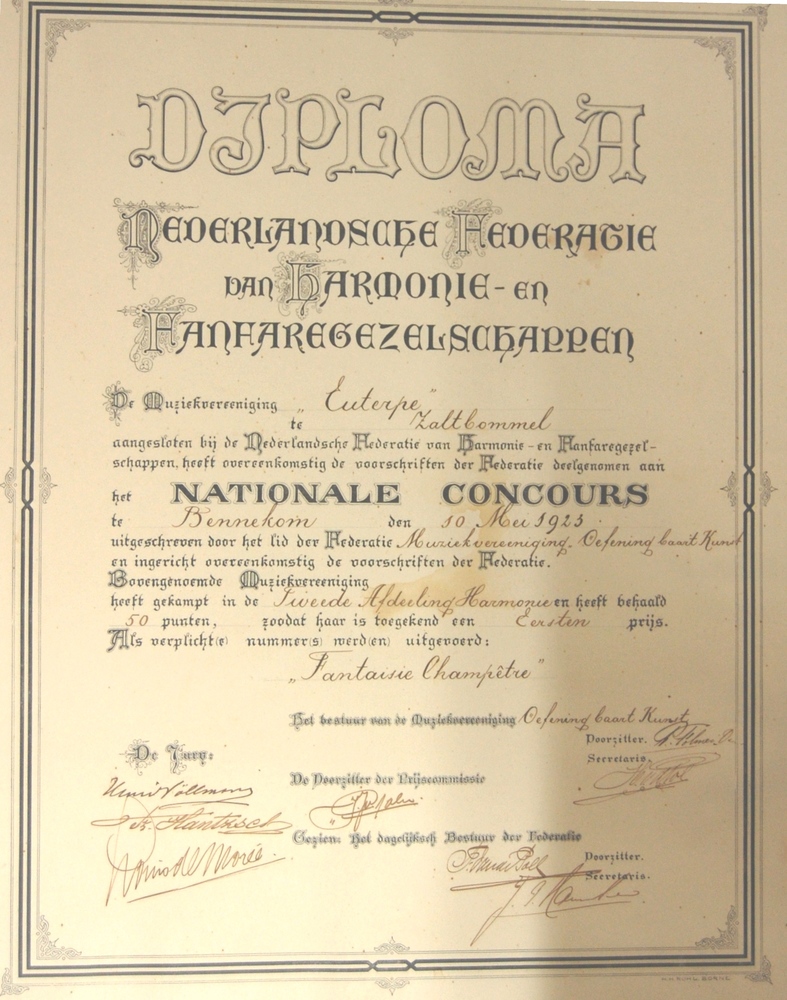 DIPLOMA
NEDERLANDSCHE FEDERATIE
VAN HARMONIE - EN
FANFAREGEZELSCHAPPEN
De Muziekvereeniging „Euterpe”
te Zaltbommel
aangesloten bij de Nederlandsche Federatie van Harmonie - en Fanfaregezel-
schappen, heeft overeenkomstig de voorschriften der Federatie deelgenomen aan
het NATIONALE CONCOURS
te Bennekom den 10 Mei 1923
uitgeschreven door het lid der Federatie Muziekvereeniging. Oefening baart Kunst
en ingericht overeenkomstig de voorschriften der Federatie.
Bovengenoemde Muziekvereeniging
heeft gekampt in de Tweede Afdeeling Harmonie en heeft behaald
50 punten, zoodat haar is toegekend een Eersten prijs.
Als verplicht(e) nummer(s) werd(en) uitgevoerd:
„Fantaisie Champêtre”
Het bestuur van de Muziekvereeniging Oefening baart Kunst
Voorzitter.
Secretaris.
De Jury:
De Voorzitter der Prijscommissie
Gezien: Het dagelijksch Bestuur der Federatie
Voorzitter.
Secretaris.